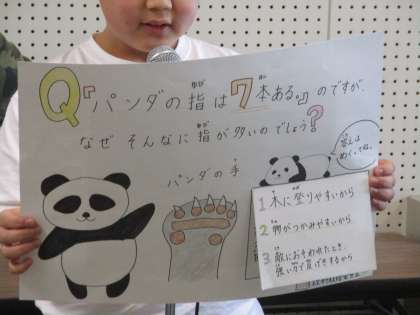 Q『パンダの指は7本ある。』のですが、
なぜ そんなに 指が 多いの でしょう?
パンダの 手
答えは
めくってね。
1 木に登りやすいから
2 物がつかみやすいから
3 敵におそわれたとき、
強い力で反げきするから